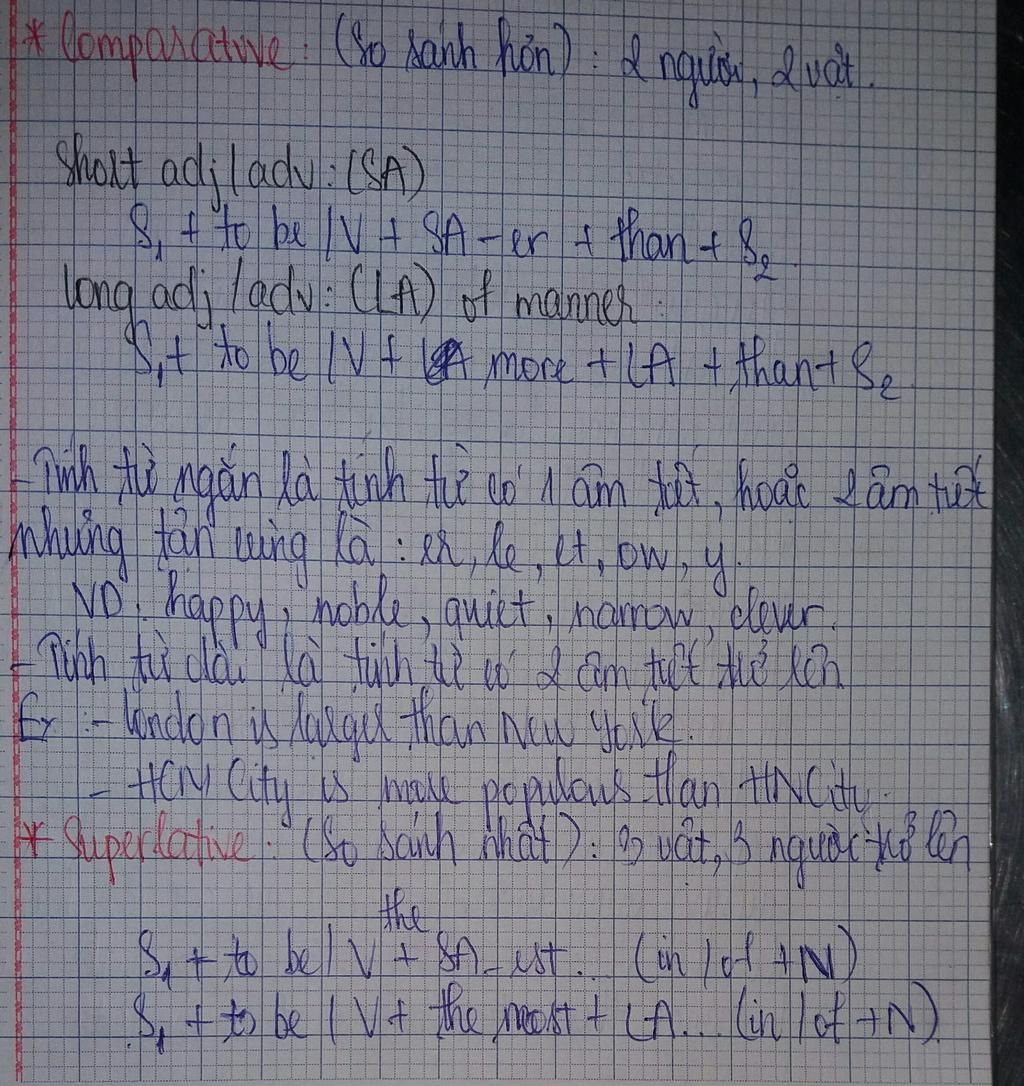 * Comparative: (So sánh hơn): 2 người, 2 vật.
Short adj/adv: (SA)
S1 + to be /V + SA-er + than + S2
long adj /adv: (LA) of manner.
S1 + to be /V + more + LA + than + S2
- Tính từ ngắn là tính từ có 1 âm tiết, hoặc 2 âm tiết
nhưng tận cùng là: er, le, et, ow, y.
VD: happy, noble, quiet, narrow, clever.
- Tính từ dài là tính từ có 2 âm tiết trở lên
Ex: - London is larger than New York.
- HCM City is more populous than HN City.
* Superlative: (So sánh nhất): 3 vật, 3 người trở lên
the
S1 + to be / V + SA-est... (in / of + N)
S1 + to be / V + the most + LA... (in / of + N)